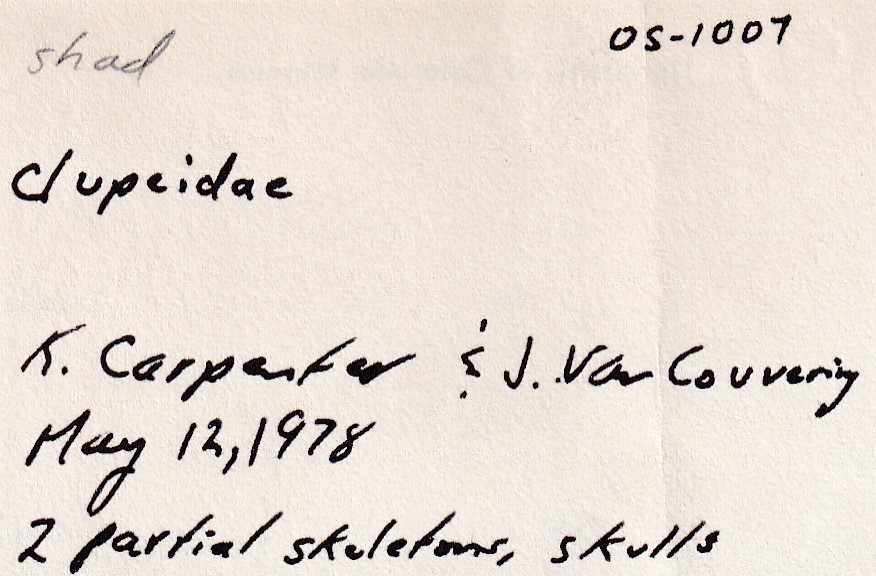 shad
OS-1007
Clupeidae
K. Carpenter & J. Van Couvering
May 12, 1978
2 partial skeletons, skulls